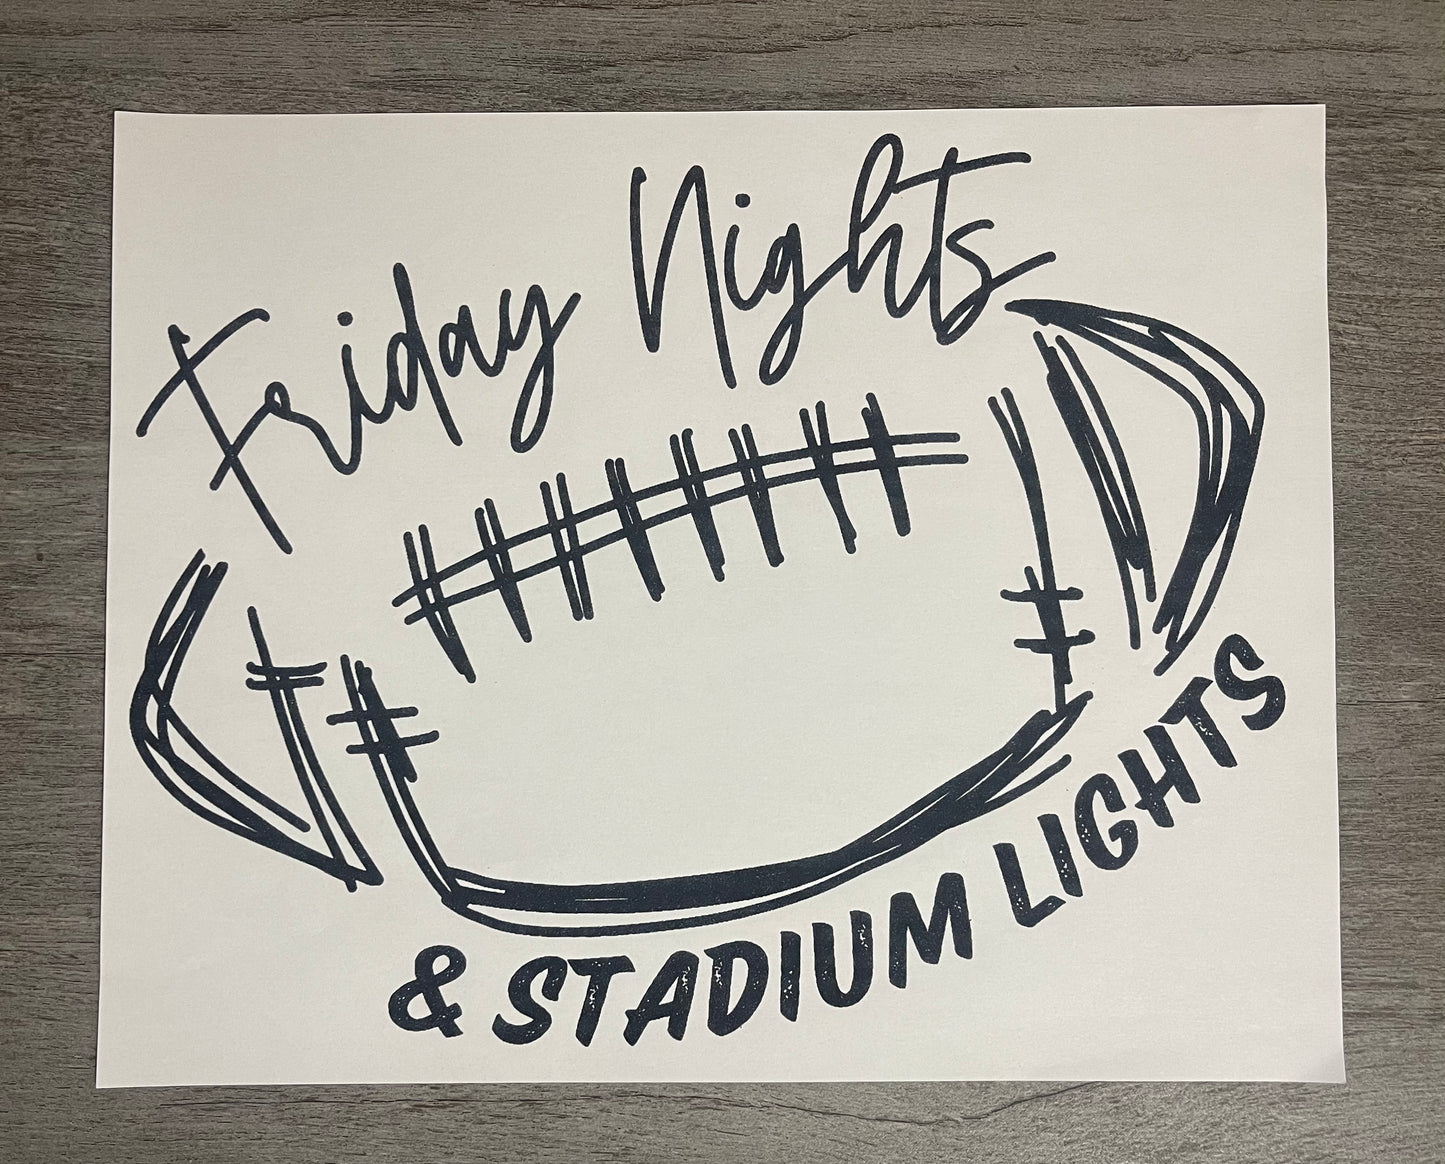 Friday Nights
& STADIUM LIGHTS